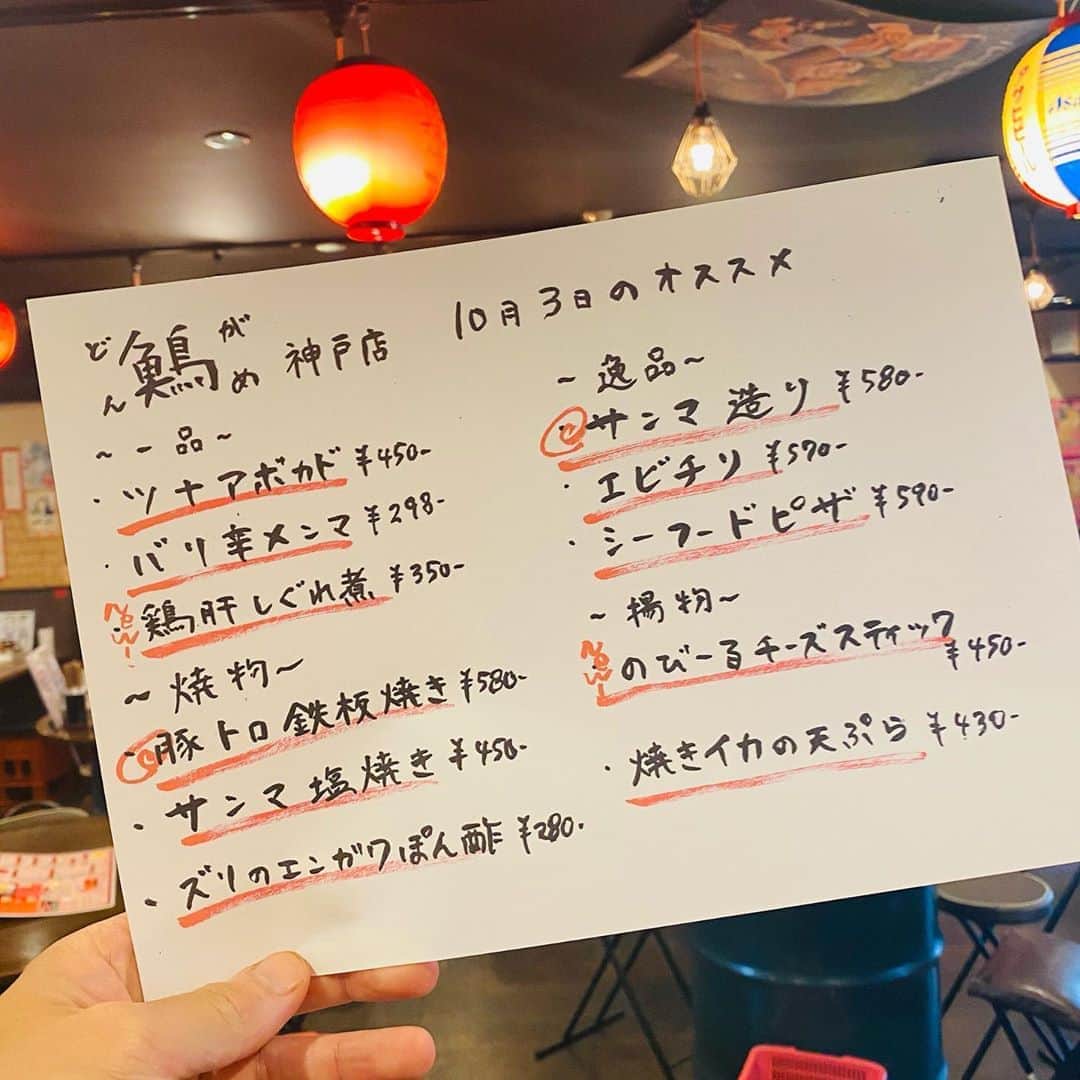 どん鶏がめ 神戸店 10月3日のオススメ
~一品~
・ツナアボカド ¥450-
・バリ辛メンマ ¥298-
New! 鶏肝しぐれ煮 ¥350-
~焼物~
・豚トロ鉄板焼き ¥580-
・サンマ塩焼き ¥450-
・ズリのエンガワぽん酢 ¥280-
~逸品~
・サンマ造り ¥580-
・エビチリ ¥570-
・シーフードピザ ¥590-
~揚物~
New! のびーるチーズスティック
¥450-
・焼きイカの天ぷら ¥430-